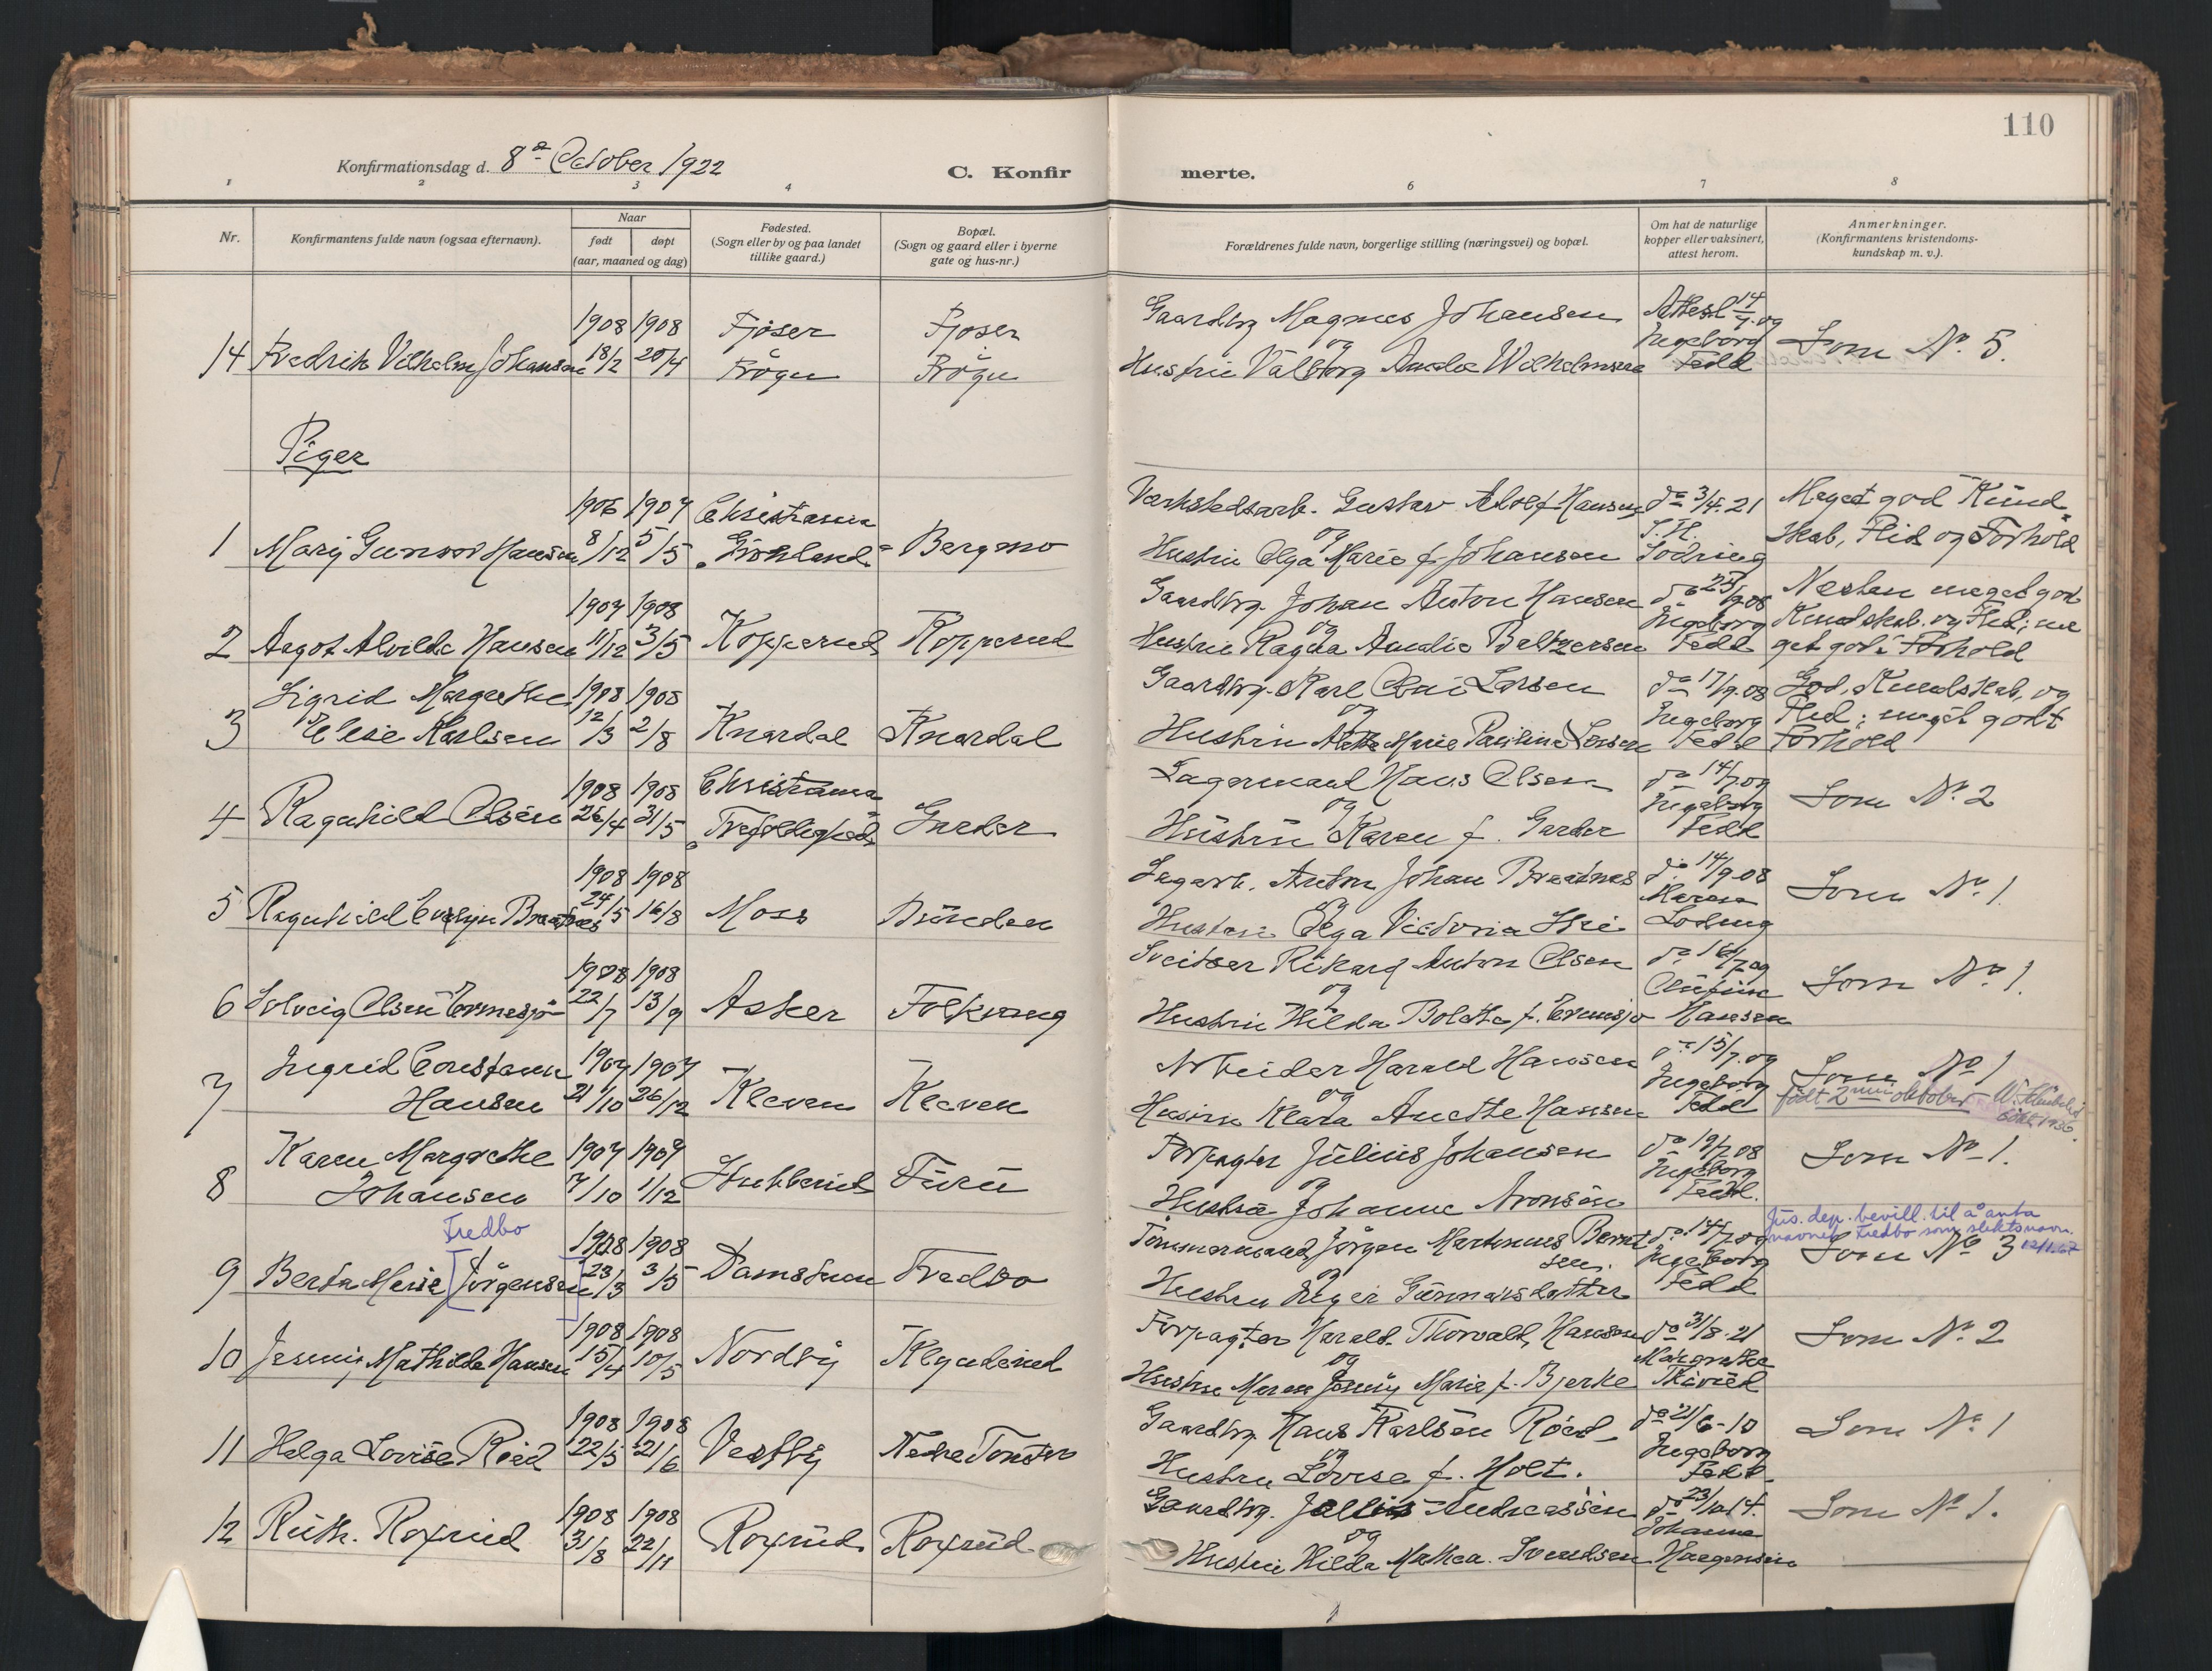 110
Konfirmationsdag d. 8de October 1922
C. Konfir merte.
1 2 3 4 6 7 8
Nr.
Konfirmantens fulde navn (ogsaa efternavn).
Naar
født døpt
(aar, maaned og dag)
Fødested.
(Sogn eller by og paa landet
tillike gaard.)
Bopæl.
(Sogn og gaard eller i byerne
gate og hus-nr.)
Forældrenes fulde navn, borgerlige stilling (næringsvei) og bopæl.
Om hat de naturlige
kopper eller vaksinert,
attest herom.
Anmerkninger.
(Konfirmantens kristendoms-
kundskap m. v.).
14 Fredrik Vilhelm Johansen
1908 1908
18/2 20/4
Fjöser
Frogn
Fjöser
Frogn
Gaardbrg Magnus Johansen
og
Hustru Valborg Amalie Wilhelmsen
Attest 14/9.09
Ingeborg
Fedd
Som No. 5.
Piger
1 Mary Gunvor Hansen
1906 1907
8/12 5/5
Christiania
"Grönland"
Bergmo
Værkstedsarb. Gustav Adolf Hansen
og
Hustru Olga Marie f Johansen
do 3/4.21
Meget god Kund-
skab, Flid og Forhold
2 Aagot Alvilde Hansen
1907 1908
11/12 3/5
Kopperud
Kopperud
Gaardbrg. Johan Anton Hansen
og
Hustru Ragna Amalie Baltzersen
do 25/9.08
Ingeborg
Fedd
Næsten meget god
Kundskab og Flid; me
get godt Forhold
3 Sigrid Margrethe
Elise Karlsen
1908 1908
12/3 2/8
Knardal
Knardal
Gaardbrg. Karl Larsen
og
Hustru Marie Pauline Larsen
do 17/9.08
Ingeborg
Fedd
God Kundskab og
Flid; meget godt
Forhold
4 Ragnhild Olsen
1908 1908
26/4 31/5
Christiania
Trefoldighed
Garder
Lagermand Hans Olsen
og
Hustru Karen f. Garder
do 14/7.09
Ingeborg
Fedd
Som No. 2
5 Ragnhild Evelyn Braatnes
1908 1908
24/5 16/8
Moss
Bunden
Sagarb. Anton Johan Braatnes
og
Hustru Olga Victoria
do 14/9.08
Maren
Som No. 1.
6 Solveig Olsen Evmesjø
1908 1908
22/7 13/9
Asker
Folkvang
Sveitser Rikard Anton Olsen
og
Hustru Hilda Bolette f. Evensjø
Hansen
Som No. 1.
7 Ingrid Constance
Hansen
1907 1907
21/10 26/12
Kleven
Kleven
Arbeider Harald Hansen
og
Hustru Klara Anette Hansen
do 15/7.09
Ingeborg
Fedd
Som No. 1
født 2 oktober
8 Karen Margrethe
Johansen
1907 1907
7/10 1/12
Stubberud
Furu
Forpagter Julius Johansen
og
Hustru Johanne Aronsen
do 19/7.08
Ingeborg
Fedd.
Som No. 1.
9 Berta Marie [Jörgensen]
Fredbo
1908 1908
23/3 3/5
Damstuen
Fredbo
Tömmermand Jörgen Martinus Bernt
sen.
og
Hustru Inger Gunnarsdatter
do 14/7.09
Ingeborg
Fedd
Jus. dep. bevill. til å anta
navnet Fredbo som slektsnavn
Som No. 3
10 Jenny Mathilde Hansen
1908 1908
15/4 10/5
Nordby
Glynderud
Forpagter Harald Thorvald Hansen
og
Hustru Maren Jenny Marie f. Bjerke
do 31/8.21
Margrethe
Som No. 2
11 Helga Lovise Röed
1908 1908
22/3 21/6
Vestby
Nedre Tomter
Gaardbrg. Hans Karlsen Röed
og
Hustru Lovise f. Holt.
do 21/6-10
Ingeborg
Fedd.
Som No. 1
12 Ruth Roxrud
1908 1908
31/8 22/11
Roxrud
Roxrud
Gaardbrg. Julius Andreassen
og
Hustru Hilda Mathea Svendsen
Johanne
Som No. 1.